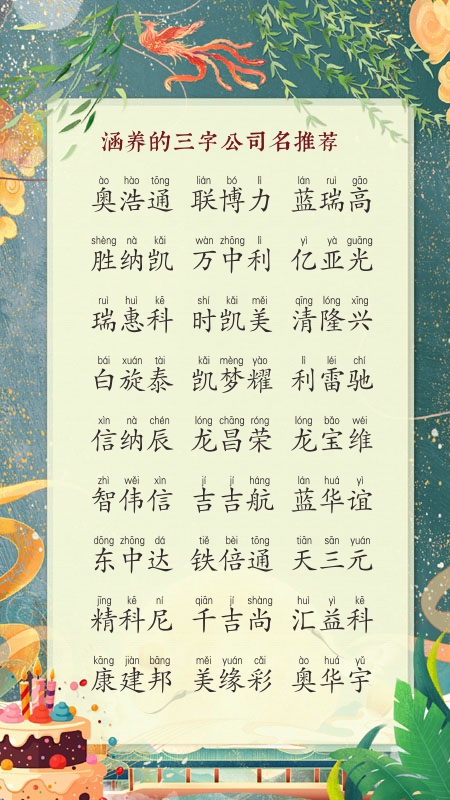 涵养的三字公司名推荐
ào hào tōng lián bó lì lán ruì gāo
奥浩通 联博力 蓝瑞高
shèng nà kǎi wàn zhōng lì yì yà guāng
胜纳凯 万中利 亿亚光
ruì huì kē shí kǎi měi qīng lóng xīng
瑞惠科 时凯美 清隆兴
bái xuán tài kǎi mèng yào lì léi chí
白旋泰 凯梦耀 利雷驰
xìn nà chén lóng chāng róng lóng bǎo wéi
信纳辰 龙昌荣 龙宝维
zhì wěi xìn jí jí háng lán huá yí
智伟信 吉吉航 蓝华谊
dōng zhōng dá tiě bèi tōng tiān sān yuán
东中达 铁倍通 天三元
jīng kē ní qiān jí shàng huì yì kē
精科尼 千吉尚 汇益科
kāng jiàn bāng měi yuán cǎi ào huá yǔ
康建邦 美缘彩 奥华宇